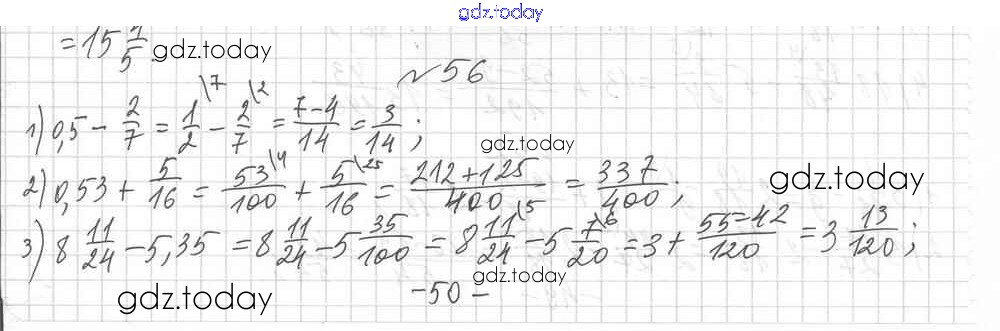 gdz.today
= 15 1/5 gdz.today
№ 56
1) 0,5 - 2/7 = 1/2 \7 - 2/7 \2 = 7-4/14 = 3/14 ; gdz.today
2) 0,53 + 5/16 = 53/100 \4 + 5/16 \25 = 212+125/400 = 337/400 ; gdz.today
3) 8 11/24 - 5,35 = 8 11/24 - 5 35/100 = 8 11/24 \5 - 5 7/20 \6 = 3 + 55-42/120 = 3 13/120 ;
gdz.today gdz.today
-50-